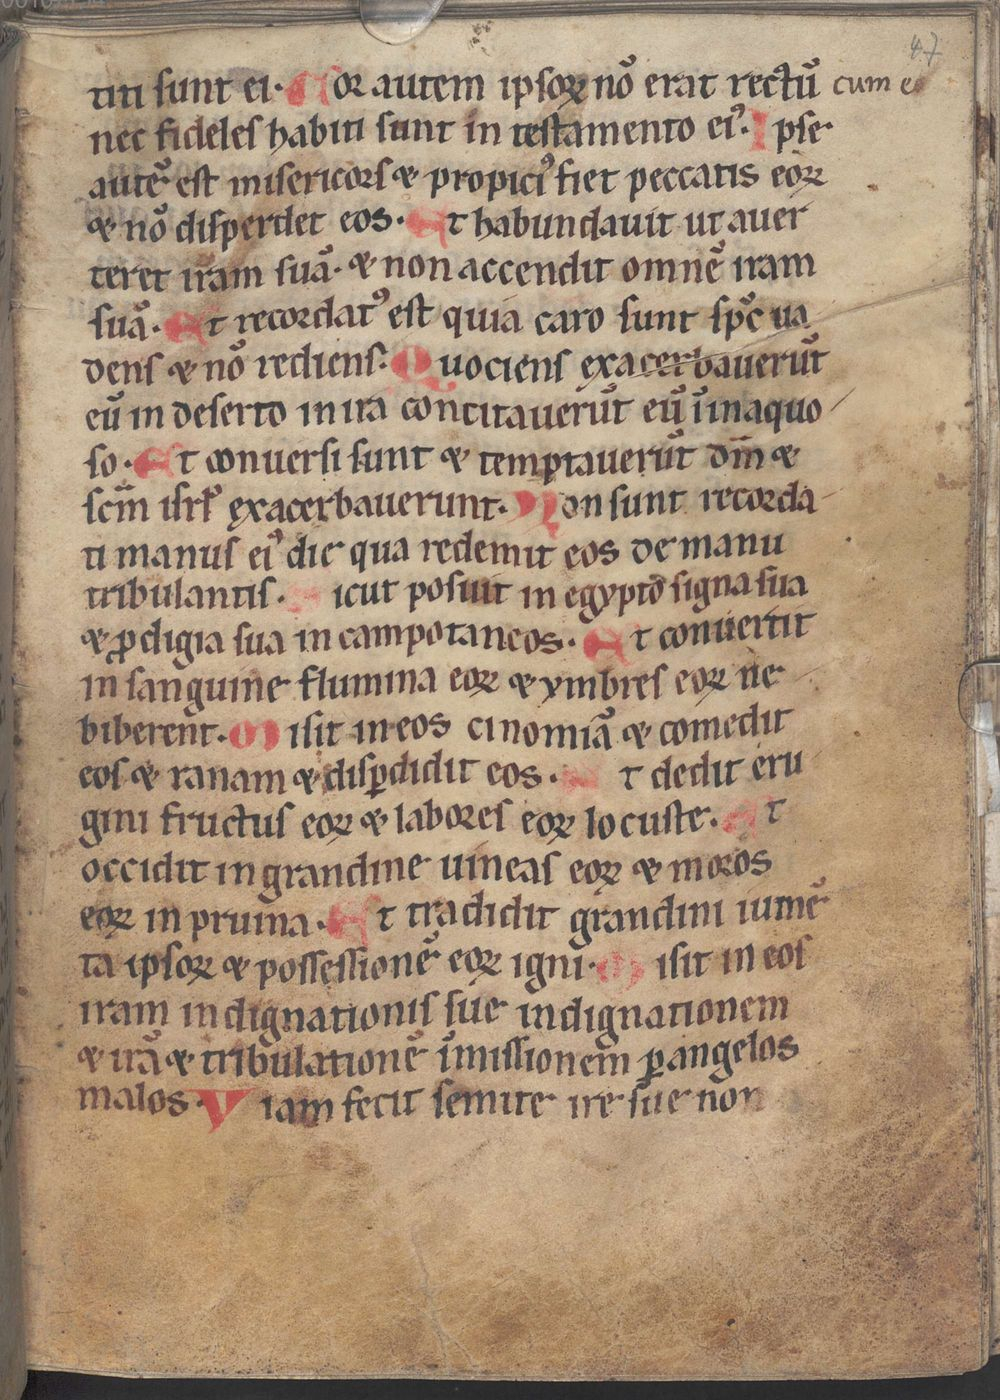 47
titi sunt ei· Cor autem ipsoꝝ nō erat rectū cum e
nec fideles habiti sunt in testamento ei᷒· Ipse
autē est misericors ⁊ propici᷒ fiet peccatis eoꝝ
⁊ nō disperdet eos· Et habundauit ut auer
teret iram suā· ⁊ non accendit omnē iram
suā· Et recordat᷒ est quia caro sunt sp̄c ua
dens ⁊ nō rediens· Quociens exacerbauerūt
eū in deserto in ira concitauerūt eū ī inaquo
so· Et conuersi sunt ⁊ temptauerūt dn̄m ⁊
scm̄ isrł exacerbauerunt· Non sunt recorda
ti manus ei᷒ die qua redemit eos de manu
tribulantis· Sicut posuit in egypto signa sua
⁊ ꝓdigia sua in campo taneos· Et conuertit
in sanguine flumina eoꝝ ⁊ ymbres eoꝝ ne
biberent· Misit in eos cinomiā ⁊ comedit
eos ⁊ ranam ⁊ disꝑdidit eos· Et dedit eru
gini fructus eoꝝ ⁊ labores eoꝝ locuste· Et
occidit in grandine uineas eoꝝ ⁊ moros
eoꝝ in pruina· Et tradidit grandini iumē
ta ipsoꝝ ⁊ possessionē eoꝝ igni· Misit in eos
iram indignationis sue indignationem
⁊ irā ⁊ tribulationē īmissionem ꝑ angelos
malos· Viam fecit semite ire sue non